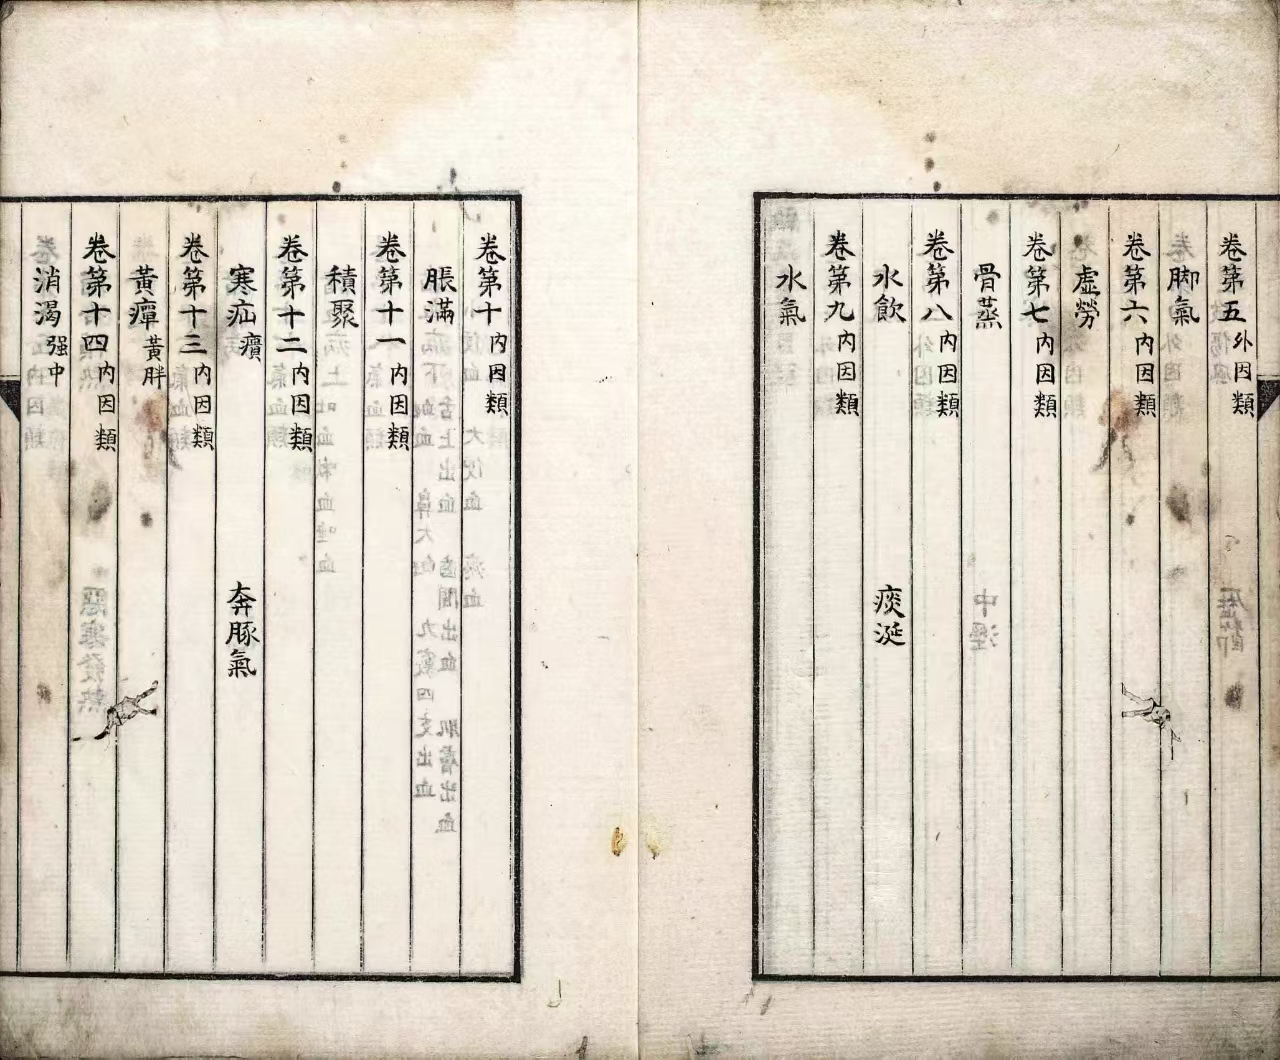 卷第五 外因類
脚氣
卷第六 内因類
虛勞
卷第七 内因類
骨蒸
卷第八 内因類
水飲 痰涎
卷第九 内因類
水氣
卷第十 内因類
脹滿
卷第十一 内因類
積聚
卷第十二 内因類
寒疝 㿗 奔豚氣
卷第十三 内因類
黃癉 黃胖
卷第十四 内因類
消渴 强中